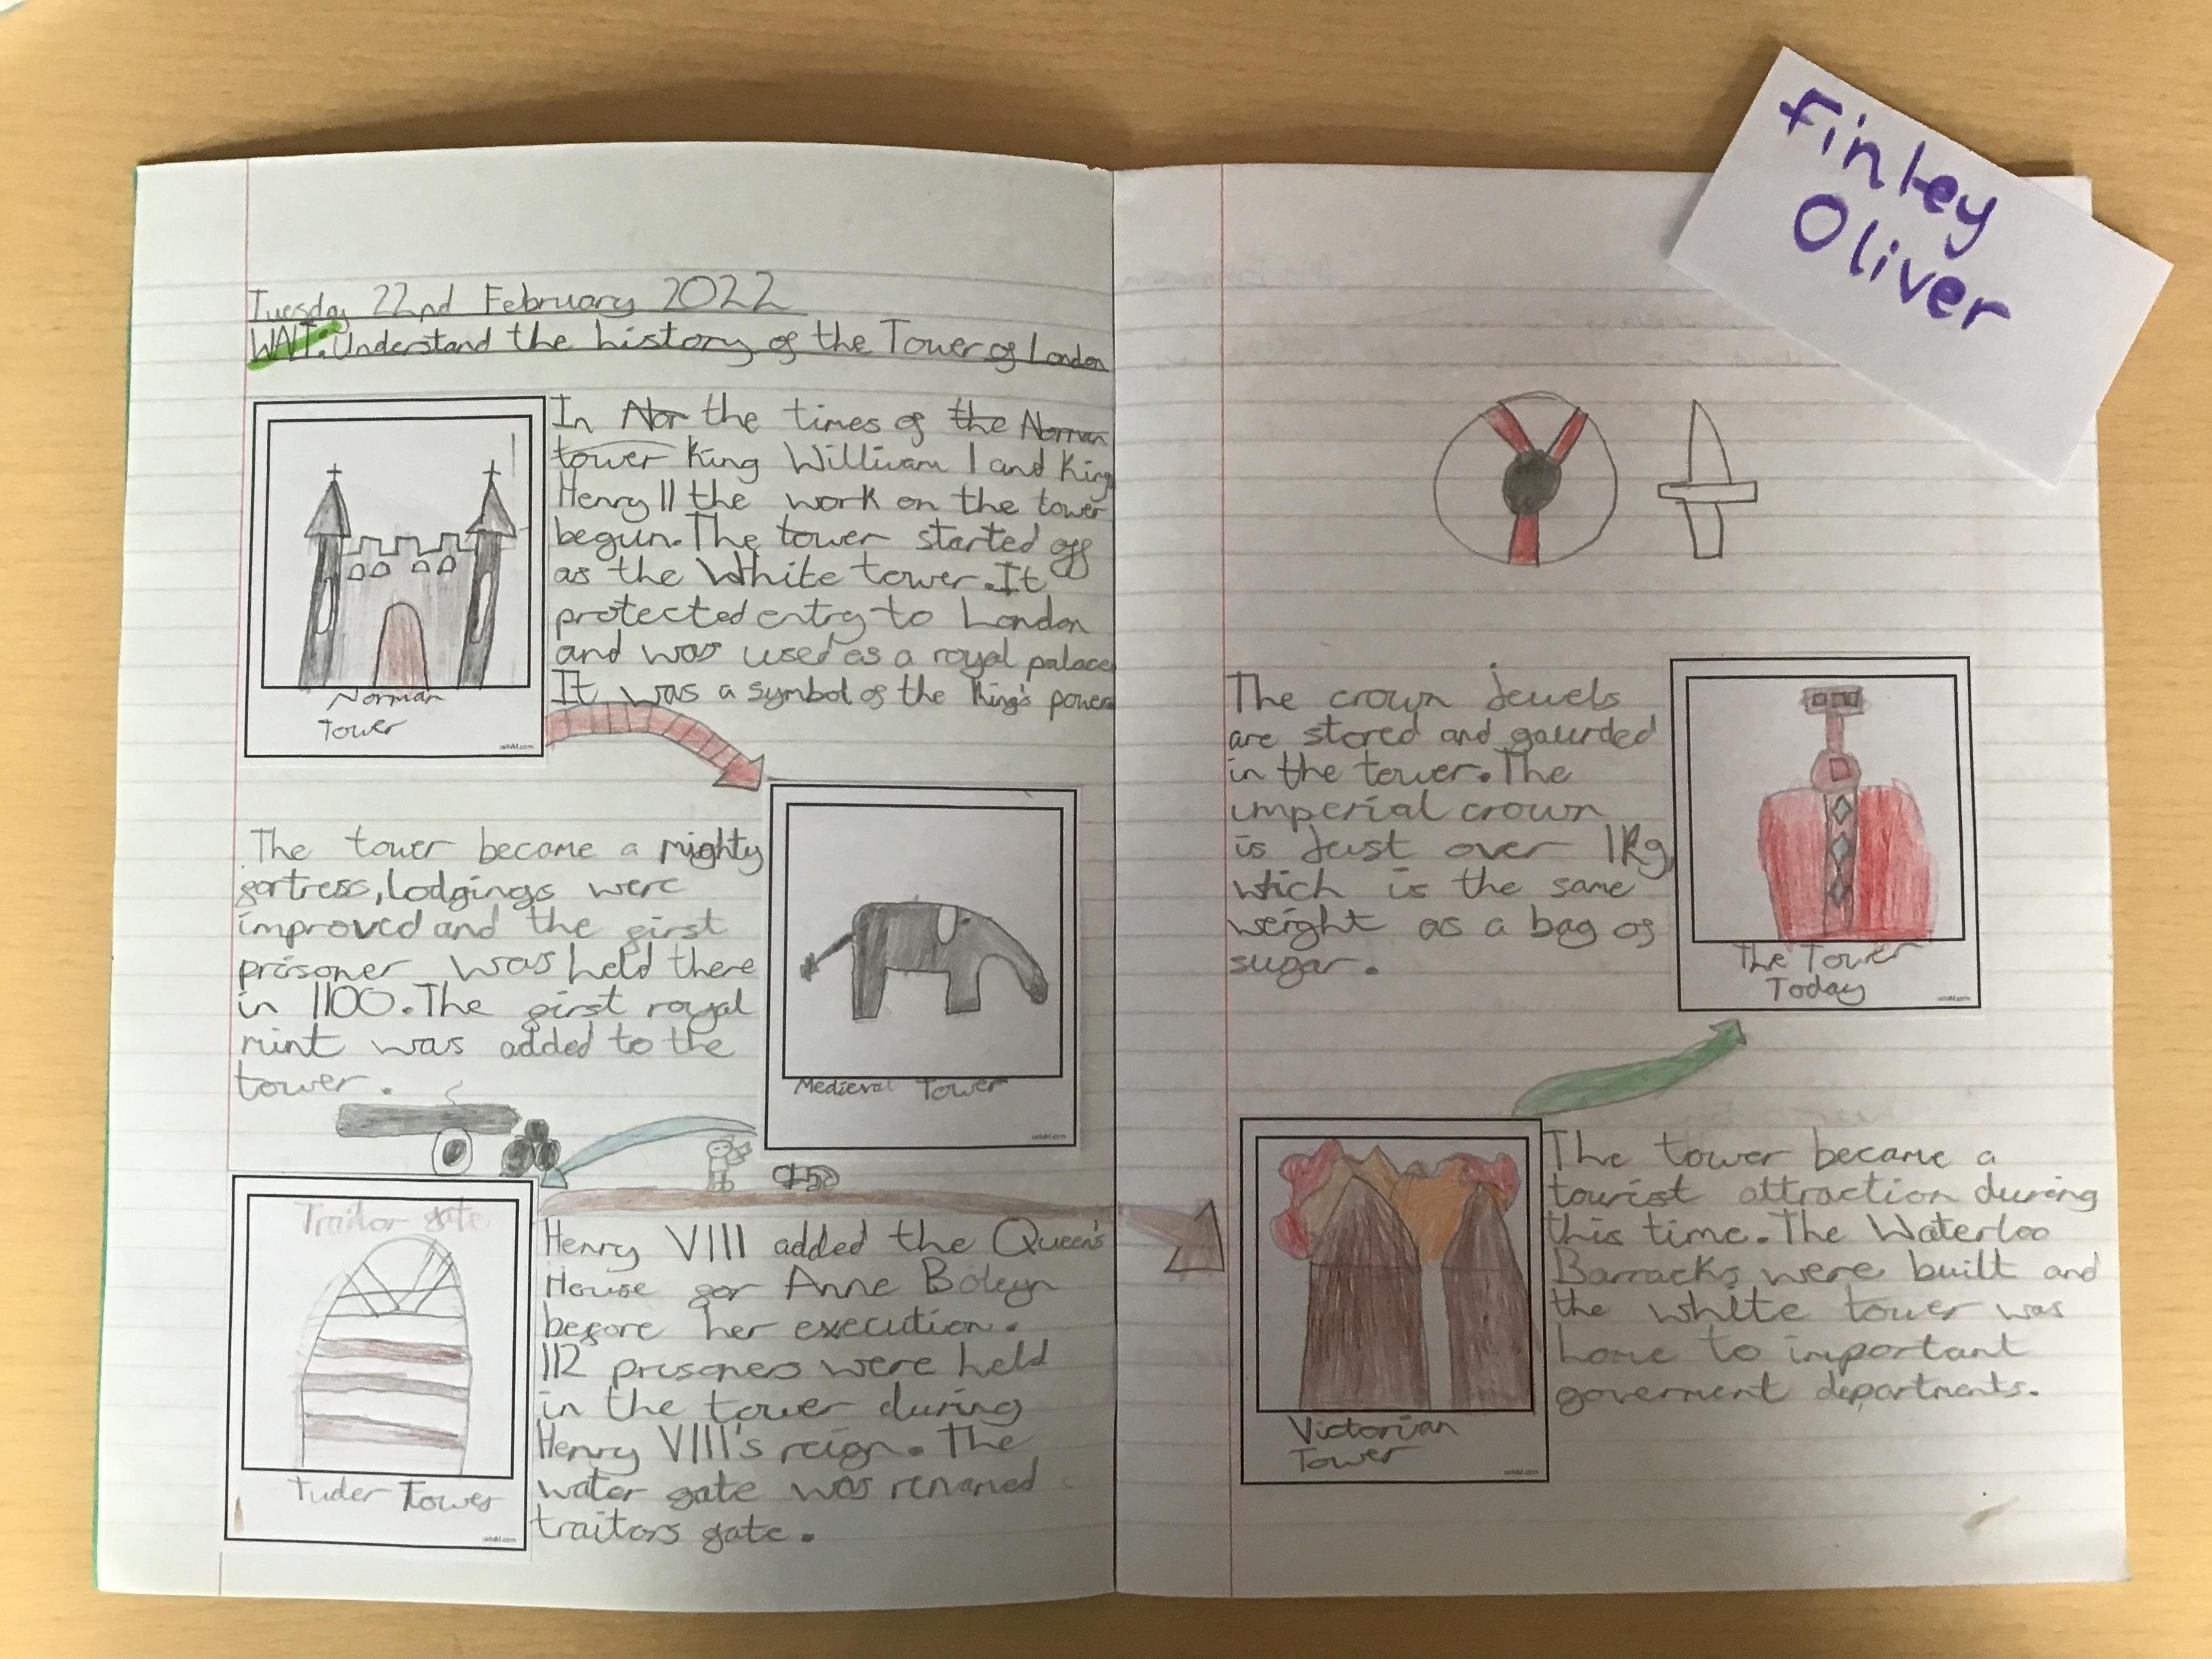 Tuesday 22nd February 2022
WALT: Understand the history of the Tower of London
In Nor the times of the Norman
tower King Willivam I and King
Henry II the work on the tower
begun. The tower started off
as the White tower. It
protected entry to London
and was used as a royal palace
It was a symbol of the King's power
Norman
Tower
The tower became a mighty
fortress, lodgings were
improved and the first
prisoner was held there
in 1100. The first royal
mint was added to the
tower.
Medieval Tower
Traitor gate
Tuder Tower
Henry VIII added the Queen's
House for Anne Boleyn
before her execution.
112 prisoners were held
in the tower during
Henry VIII's reign. The
water gate was renamed
traitors gate.
Finley
Oliver
The crown jewels
are stored and gaurded
in the tower. The
imperial crown
is Just over 1Kg,
which is the same
weight as a bag of
sugar.
The Tower
Today
Victorian
Tower
The tower became a
tourist attraction during
this time. The Waterloo
Barracks were built and
the white tower was
home to important
goverment departments.